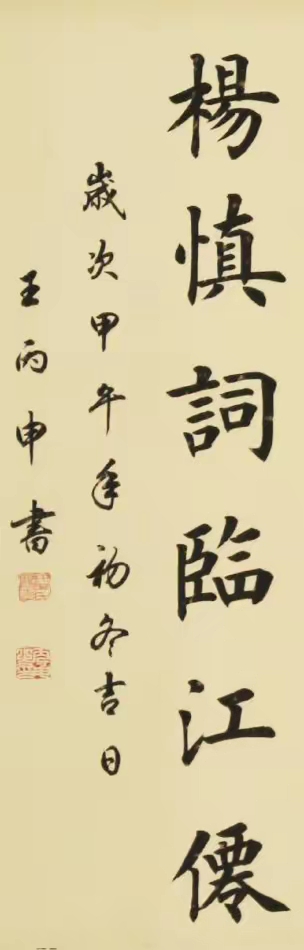 楊慎詞臨江僊
歲次甲午年初冬吉日
王丙申書